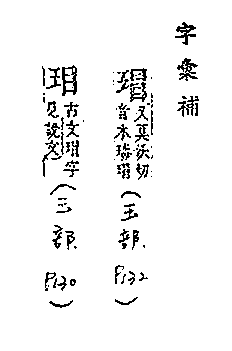 字彙補
瑁
又莫沃切
音木瑇瑁
(王部. P132)
古文瑁字
見說文
(王部. P130)